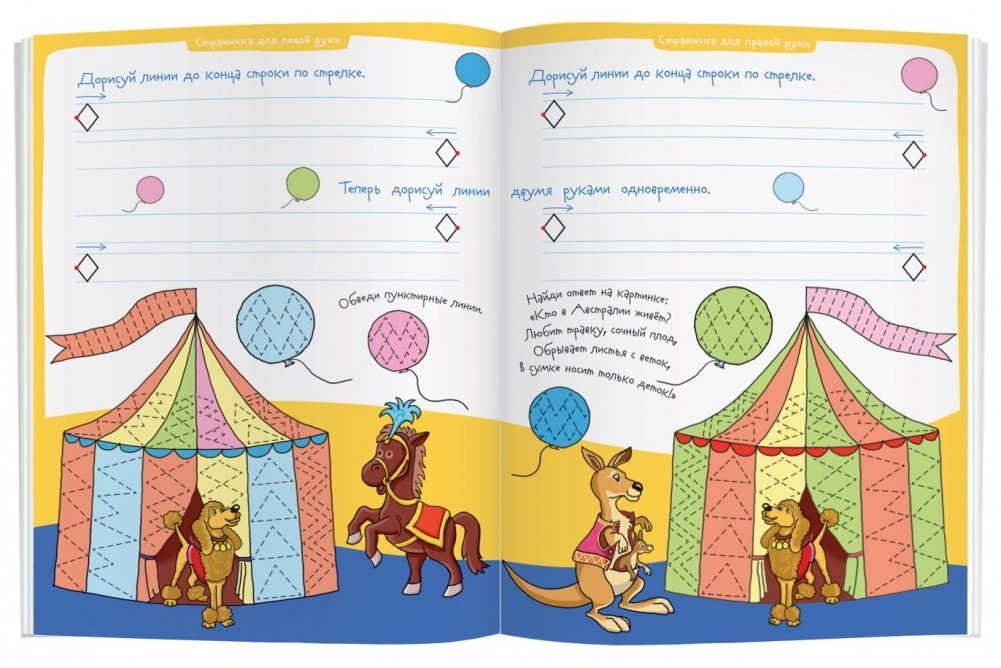 Страничка для левой руки
Дорисуй линии до конца строки по стрелке.
Страничка для правой руки
Дорисуй линии до конца строки по стрелке.
Теперь дорисуй линии двумя руками одновременно.
Обведи пунктирные линии.
Найди ответ на картинке:
«Кто в Австралии живёт?
Любит травку, сочный плод,
Обрывает листья с веток,
В сумке носит только деток!»